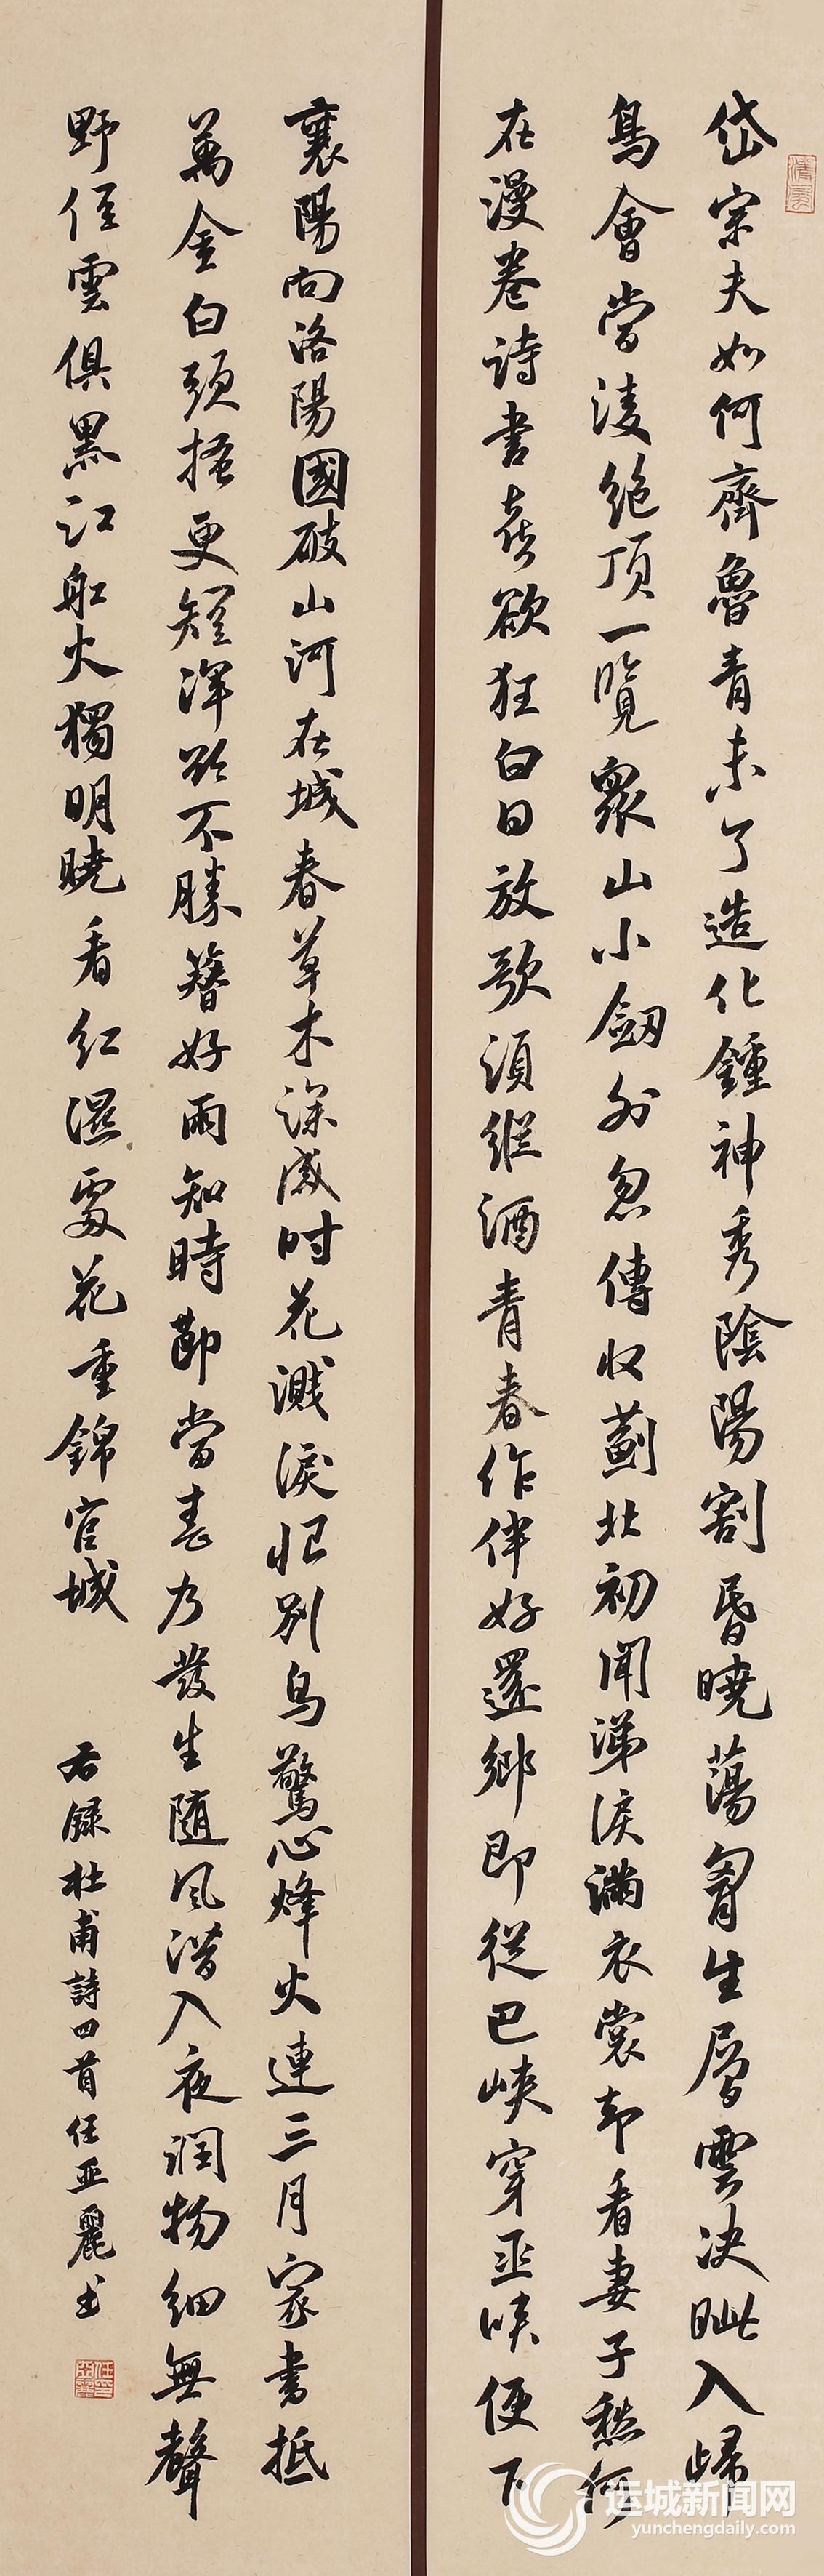 岱宗夫如何齊魯青未了造化鍾神秀陰陽割昏曉蕩胷生層雲決眦入歸
鳥會當淩絕頂一覽衆山小劒外忽傳收薊北初聞涕淚滿衣裳却看妻子愁何
在漫卷詩書喜欲狂白日放歌須縱酒青春作伴好還鄉即從巴峽穿巫峽便下
襄陽向洛陽國破山河在城春草木深感時花濺淚恨別鳥驚心烽火連三月家書抵
萬金白頭搔更短渾欲不勝簪好雨知時節當春乃發生隨風潛入夜潤物細無聲
野徑雲俱黑江船火獨明曉看紅濕處花重錦官城
右録杜甫詩四首任亚麗书
运城新闻网
yunchengdaily.com